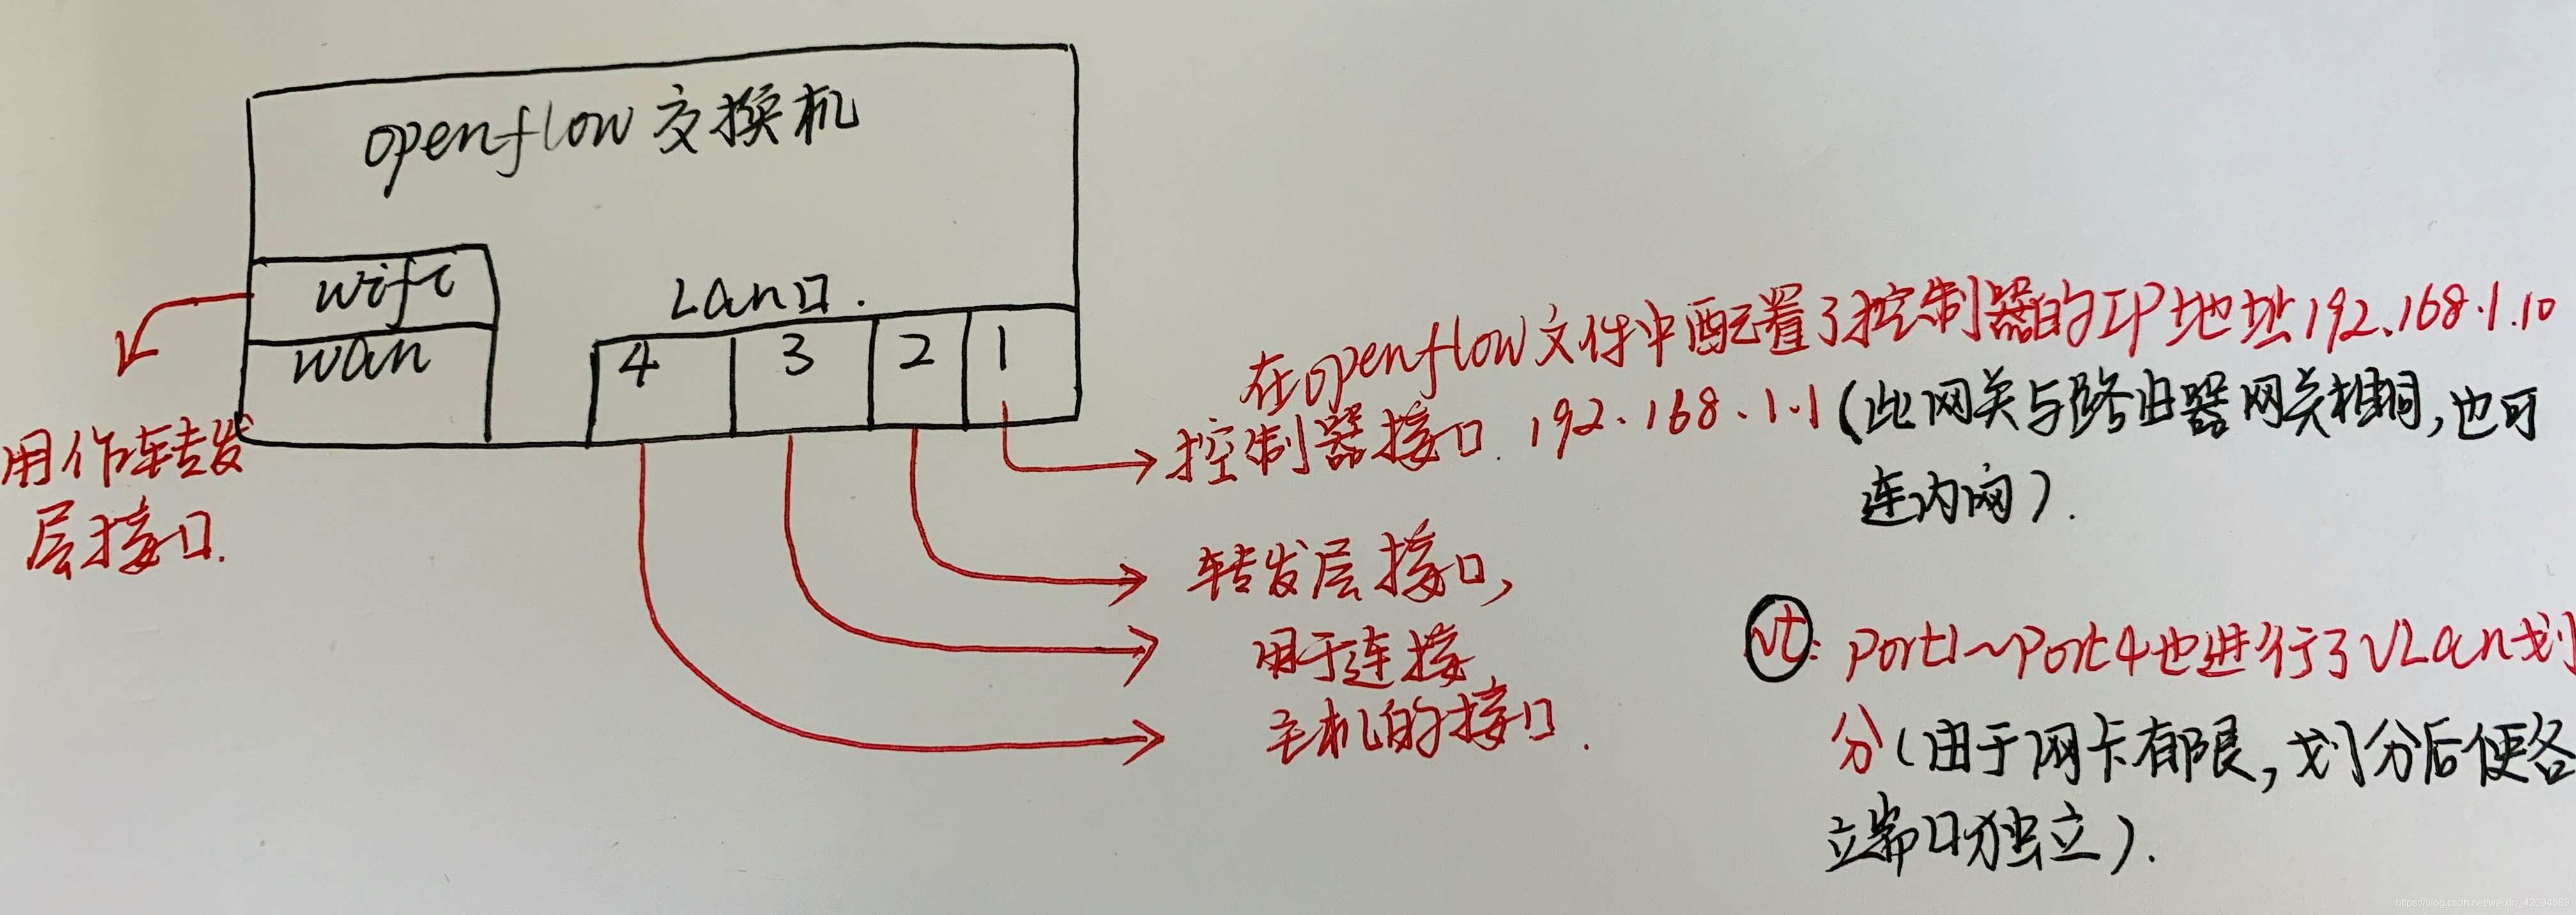 openflow 交换机
wifi
Lan口.
wan
4
3
2
1
用作转发
层接口.
在openflow文件中配置了控制器的IP地址192.168.1.10
控制器接口. 192.168.1.1(此网关与路由器网关相同,也可
连内网).
转发层接口,
用于连接
主机的接口.
: port1~port4也进行了VLan划
分(由于网卡有限,划分后便各
立端口独立).
https://blog.csdn.net/weixin_42094589